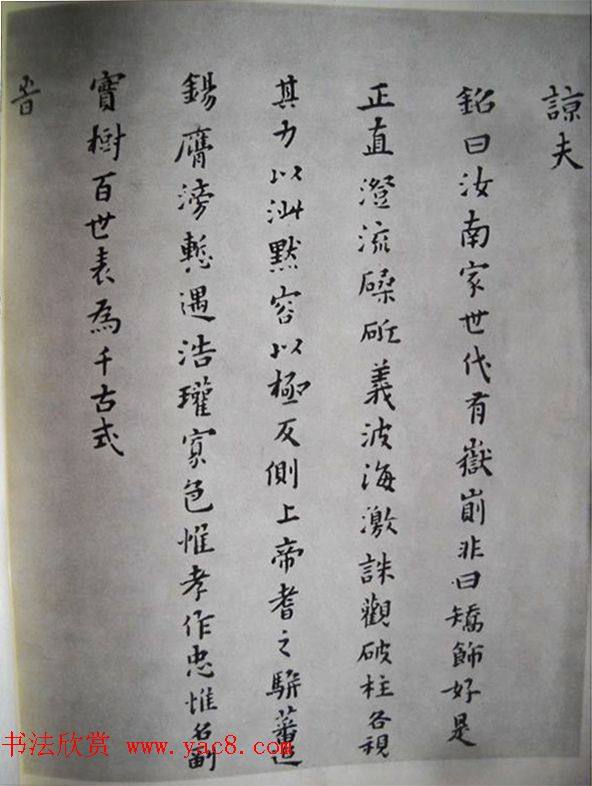 諒夫
銘曰汝南家世代有嶽崱非曰矯飾好是
正直澄流磉砥義波海激誅觀破柱各視
其力以訕黙容以極反側上帝耆之駢蕃
錫膺滂慙遇浩瓘寡色惟孝作忠惟名副
實樹百世表為千古式
音
书法欣赏 www.yac8.com